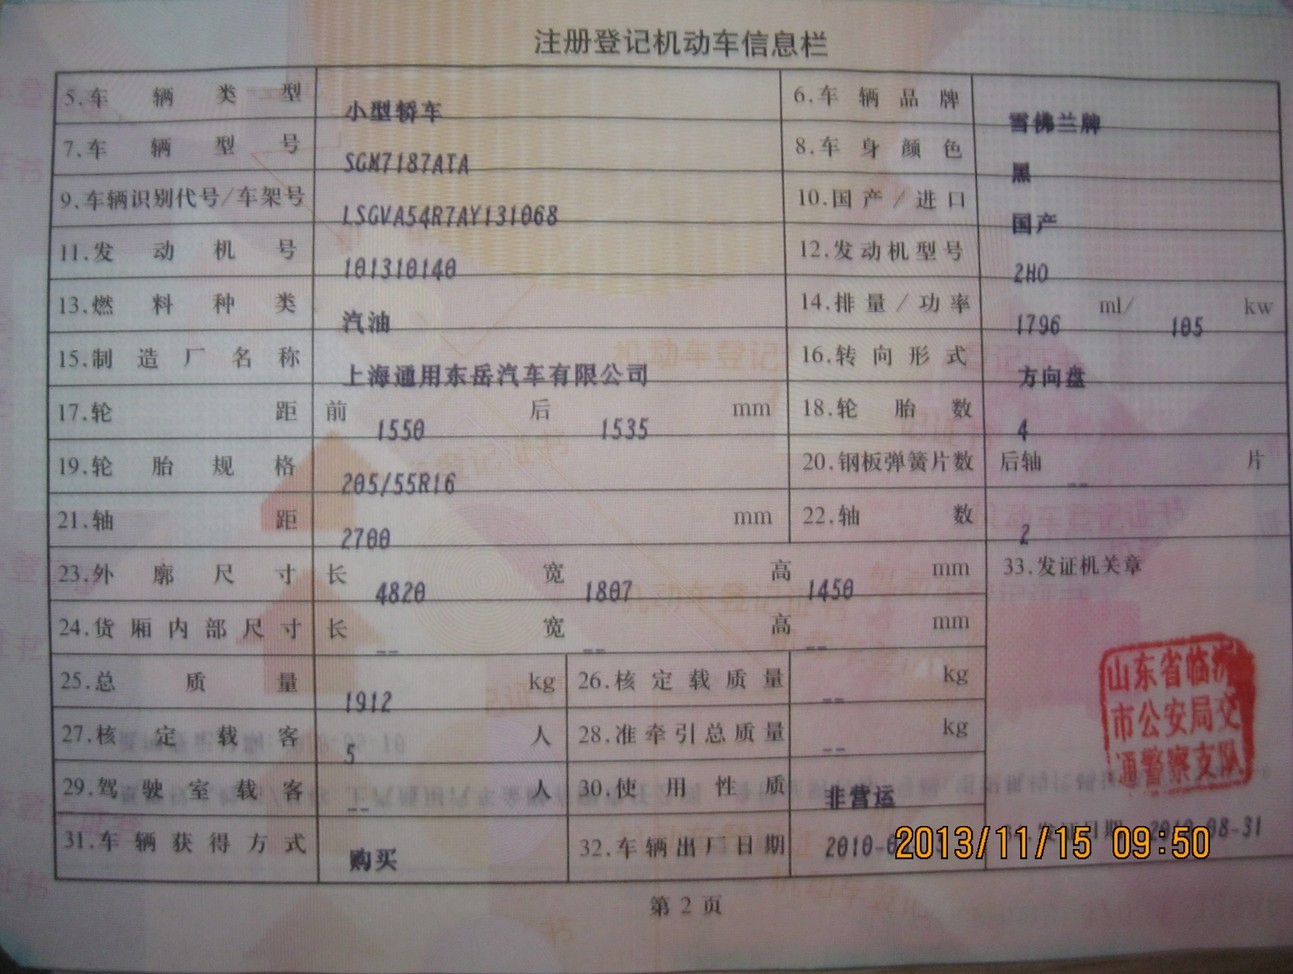 注册登记机动车信息栏
5.车辆类型 小型轿车 6.车辆品牌 雪佛兰牌
7.车辆型号 SGM7187ATA 8.车身颜色 黑
9.车辆识别代号/车架号 LSGVA54R7AY131068 10.国产/进口 国产
11.发动机号 101310140 12.发动机型号 2H0
13.燃料种类 汽油 14.排量/功率 1796 ml/ 105 kw
15.制造厂名称 上海通用东岳汽车有限公司 16.转向形式 方向盘
17.轮距 前 1550 后 1535 mm 18.轮胎数 4
19.轮胎规格 205/55R16 20.钢板弹簧片数 后轴 -- 片
21.轴距 2700 mm 22.轴数 2
23.外廓尺寸 长 4820 宽 1807 高 1450 mm 33.发证机关章
24.货厢内部尺寸 长 -- 宽 -- 高 -- mm
25.总质量 1912 kg 26.核定载质量 -- kg
27.核定载客 5 人 28.准牵引总质量 -- kg
29.驾驶室载客 -- 人 30.使用性质 非营运
31.车辆获得方式 购买 32.车辆出厂日期 2010-0 发证日期 2010-08-31
山东省临沂
市公安局交
通警察支队
2013/11/15 09:50
第2页